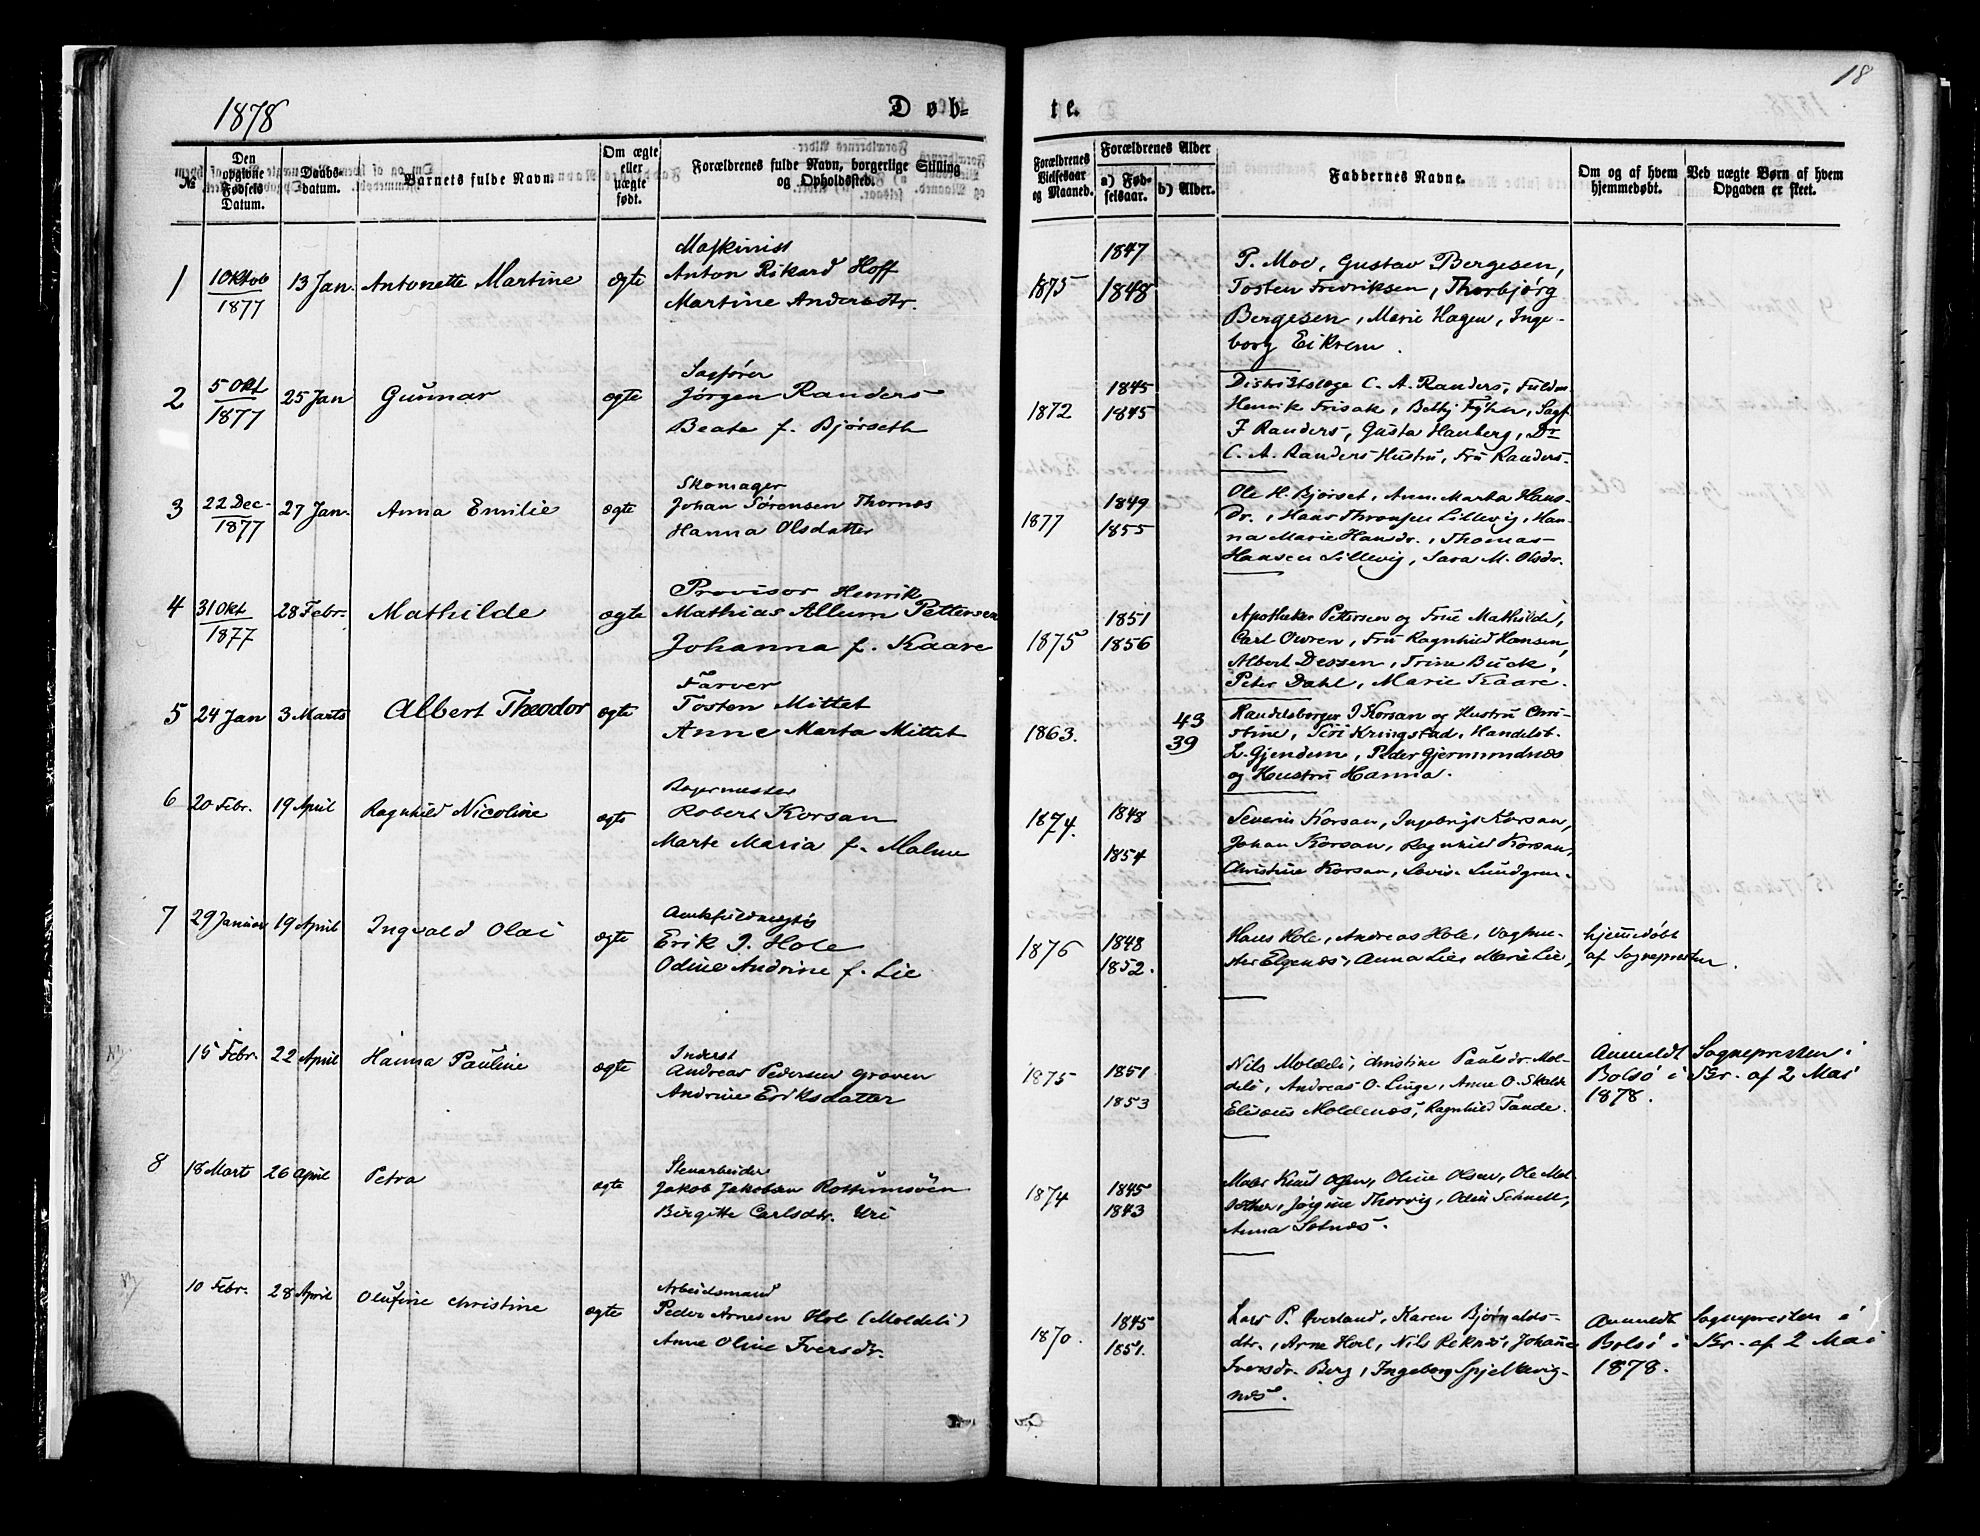 18
1878
Døb-
te.
№
Den opgivne Fødsels Datum.
Daabs-datum.
Barnets fulde Navn.
Om ægte eller uægte født.
Forældrenes fulde Navn, borgerlige Stilling og Opholdssted.
Forældrenes Vielsesaar og Maaned.
Forældrenes Alder
a) Fødselsaar.
b) Alder.
Faddernes Navne.
Om og af hvem hjemmedøbt.
Ved uægte Børn af hvem Opgaven er skeet.
1 10 Ktob 1877 13 Jan. Antonette Martine ægte
Maskinist
Anton Rikard Hoff
Martine Andersdtr.
1875 1847 1848
P. Moe, Gustav Bergesen,
Tosten Fredriksen, Thorbjørg
Bergesen, Marie Hagen, Inge-
borg Eikrem.
2 5 Okt 1877 25 Jan Gunnar ægte
Sagfører
Jørgen Randers
Beate f. Bjørseth
1872 1845 1845
Distriktslæge C. A. Randers, Fuldm.
Henrik Frisak, Bethy Fyhn, Sagf.
J Randers, Gusta Hanberg, Dr
C. A. Randers Hustru, Fru Randers.
3 22 Dec. 1877 27 Jan. Anna Emilie ægte
Skomager
Johan Sørensen Thornæs
Hanna Olsdatter
1877 1849 1855
Ole H. Bjørset, Ann Marta Hans-
dr., Hans Thronsen Lillevig, Han-
na Marie Hansdr., Thomas
Hansen Lillevig, Sara M. Olsdr.
4 31 Okt 1877 28 Febr. Mathilde ægte
Provisor Henrik
Mathias Allum Pettersen
Johanna f. Kaare
1875 1851 1856
Apotheker Pettersen og Frue Mathilde,
Carl Owren, Fru Ragnhild Hansen,
Albert Dessen, Trine Buck,
Peter Dahl, Marie Kaare.
5 24 Jan 3 Marts Albert Theodor ægte
Farver
Tosten Mittet
Anne Marta Mittet
1863. 43 39
Handelsborger J Korsan og Hustru Chri-
stine, Siri Kringstad, Handelsb.
L. Gjendem, Peder Gjermundnæs
og Hustru Hanna.
6 20 Febr. 19 April Ragnhild Nicoline ægte
Bagermester
Robert Korsan
Marte Maria f. Malme
1874. 1848 1854
Severin Korsan, Ingebrigt Korsan,
Johan Korsan, Ragnhild Korsan,
Christine Korsan, Lovise Lundgren.
7 29 Januar 19 April Ingvald Olai ægte
Amtsfuldmægtig
Erik J. Hole
Odine Andrine f. Lie
1876 1848 1852.
Hans Hole, Andreas Hole, Vagtme-
ster Elgenæs, Anna Lie, Marie Lie,
hjemedøbt
af Sognepresten.
15 Febr. 22 April Hanna Pauline ægte
Inderst
Andreas Pedersen Groven
Andrine Eriksdatter
1875 1851 1853
Nils Moldeli, Christine Paulsdr. Mol-
deli, Andreas O. Linge, Anne O. Skalle
Eliseus Moldenæs, Ragnhild Tande.
Anmeldt Sognepresten i
Bolsø i Br. af 2 Mai
1878.
8 18 Marts 26 April Petra ægte
Stenarbeider
Jakob Jakobsen Rottumsvén
Birgitte Carlsdtr. Uri
1874 1845 1843
Maler Knut Olsen, Oline Olsen, Ole Mol-
Jørgine Thorvig, Odin Schnell,
Anna Solnæs.
10 Febr. 28 April Olufine Christine ægte
Arbeidsmand
Peder Arnesen Hol (Moldeli)
Anne Oline Iversdr.
1870. 1845 1851.
Lars P. Overland, Karen Bjørnolds-
dtr., Arne Hoel, Nils Reknes, Johanne
Iversdr. Berg, Ingeborg Spjelkavig-
næs.
Anmeldt Sognepresten i
Bolsø i Br. af 2 Mai
1878.